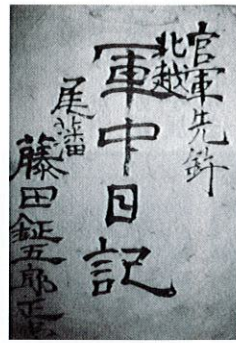 官軍先鉾
北越
軍中日記
尾藩
藤田鉦五郎正